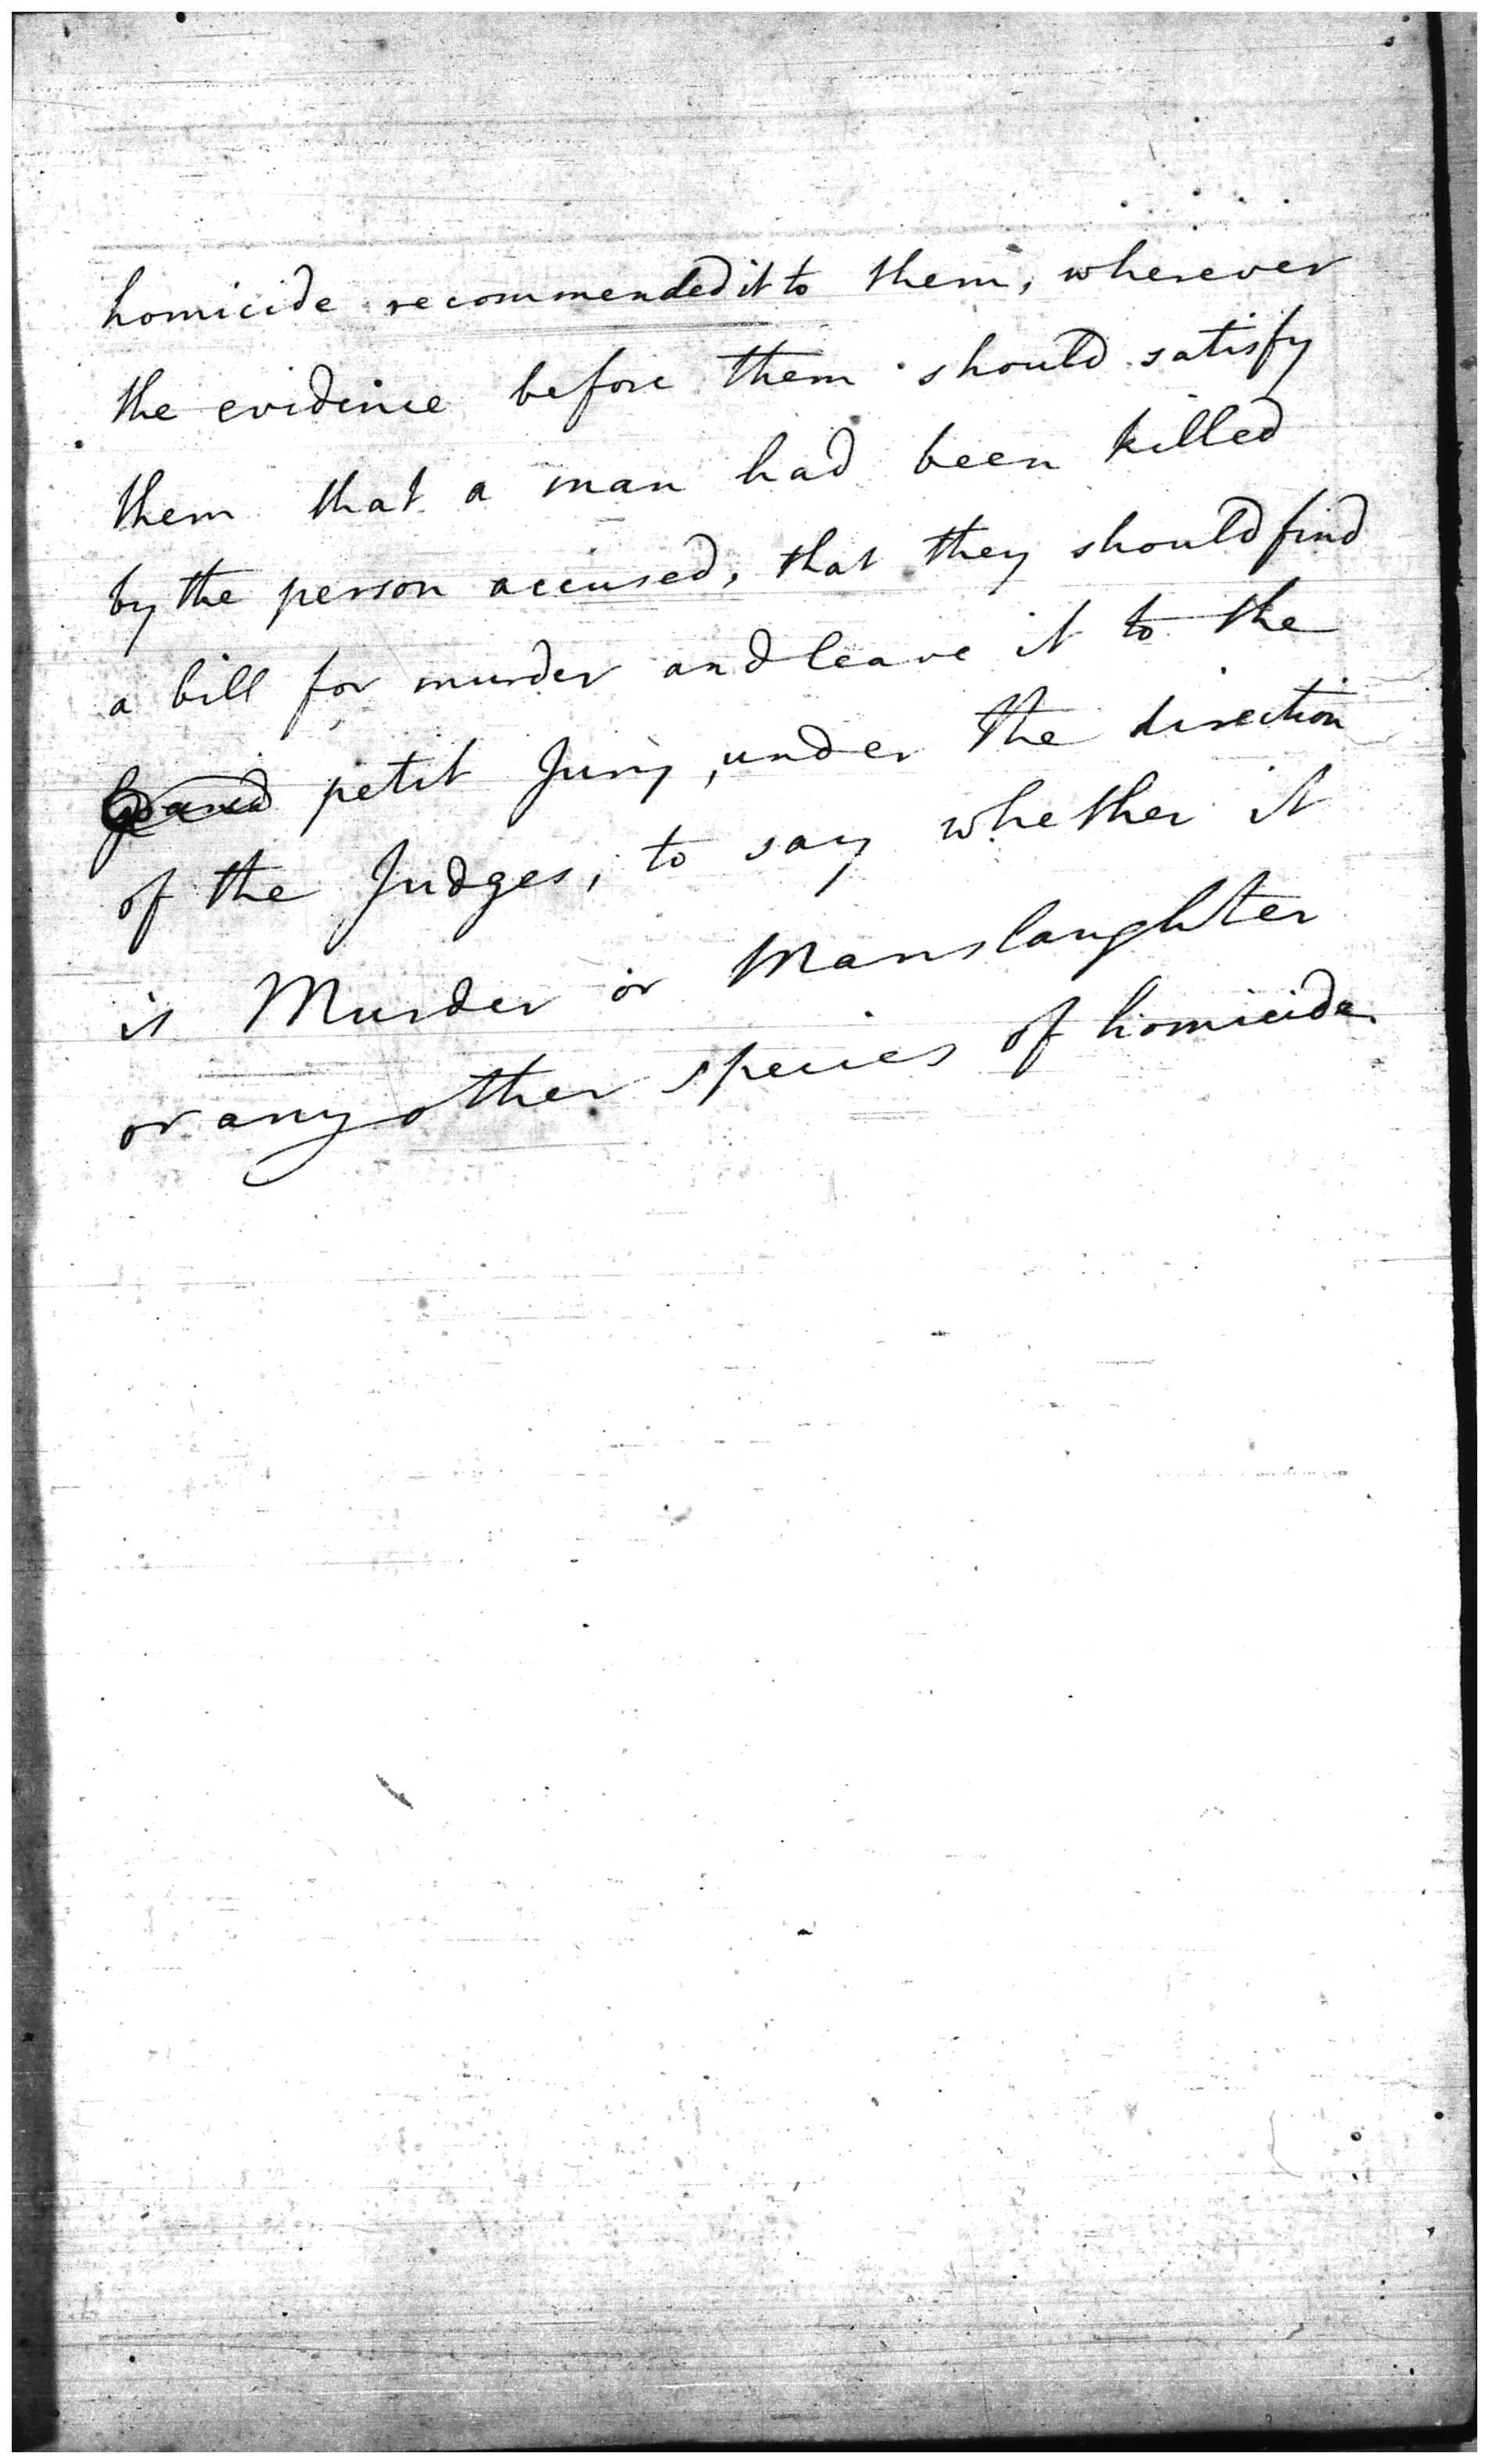 homicide recommended it to them, wherever
the evidence before them should satisfy
them that a man had been killed
by the person accused, that they should find
a bill for murder and leave it to the
Grand petit Jury, under the direction
of the Judges, to say whether it
is Murder or Manslaughter
or any other species of homicide.